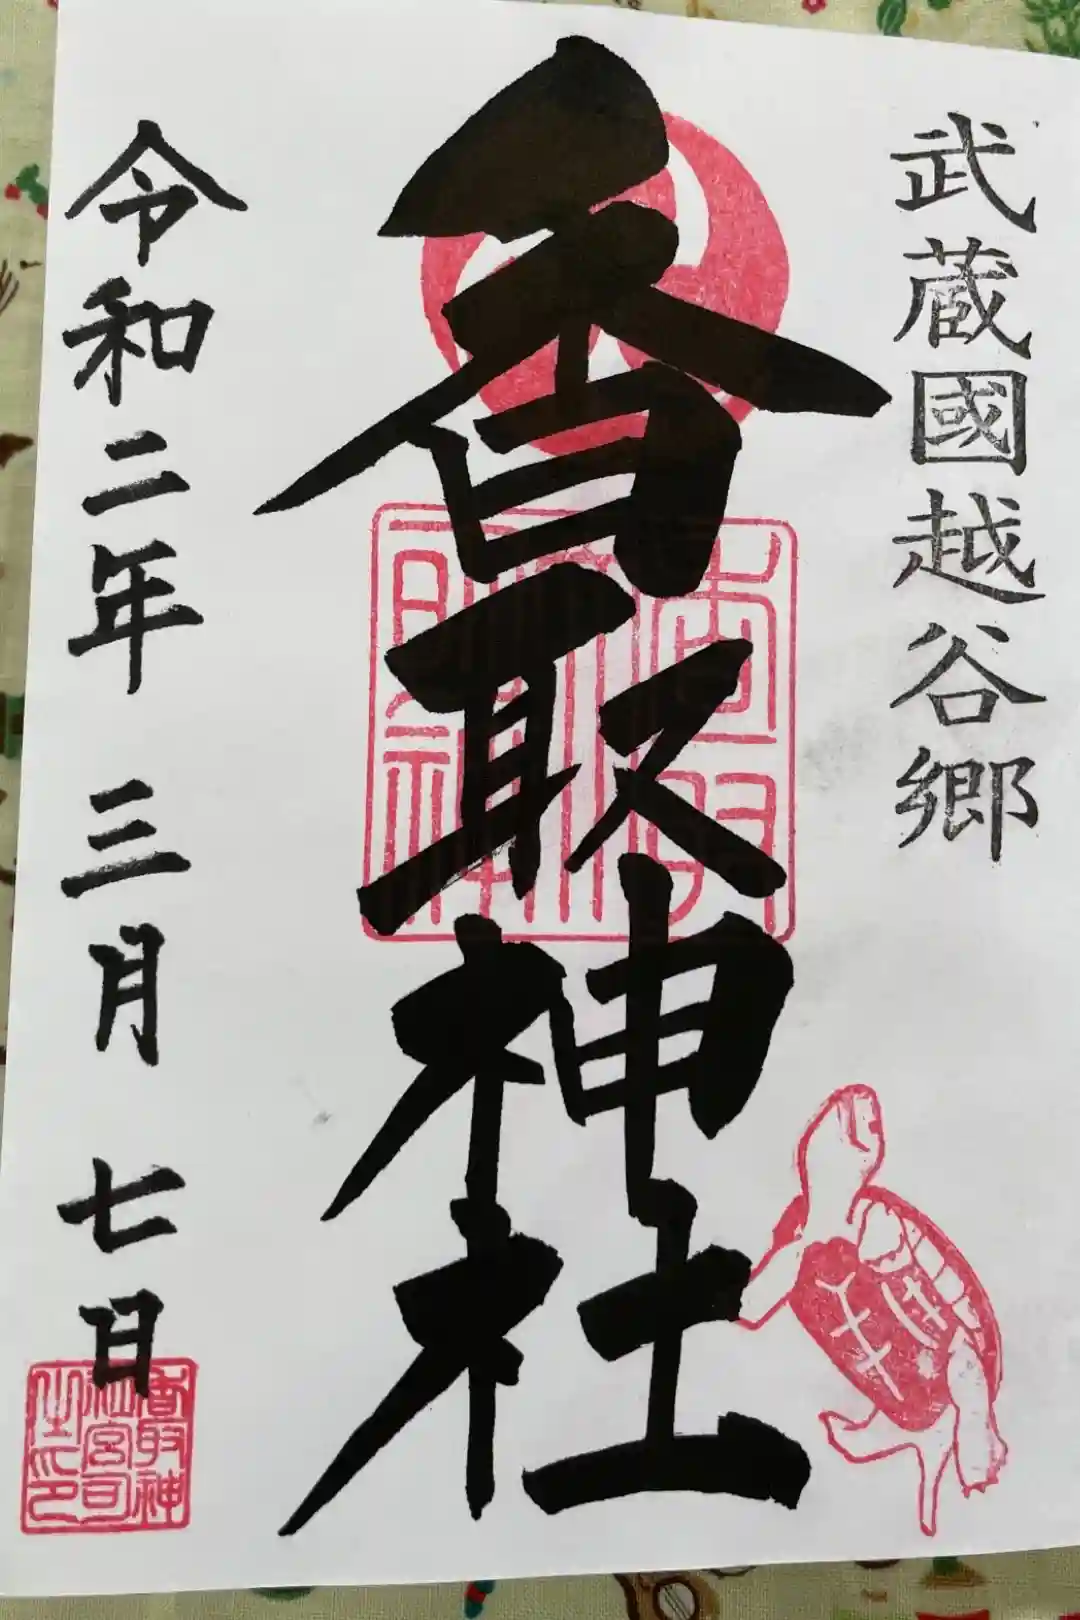 武蔵國越谷郷
香取神社
令和二年 三月 七日
香取神
社宮司
之印